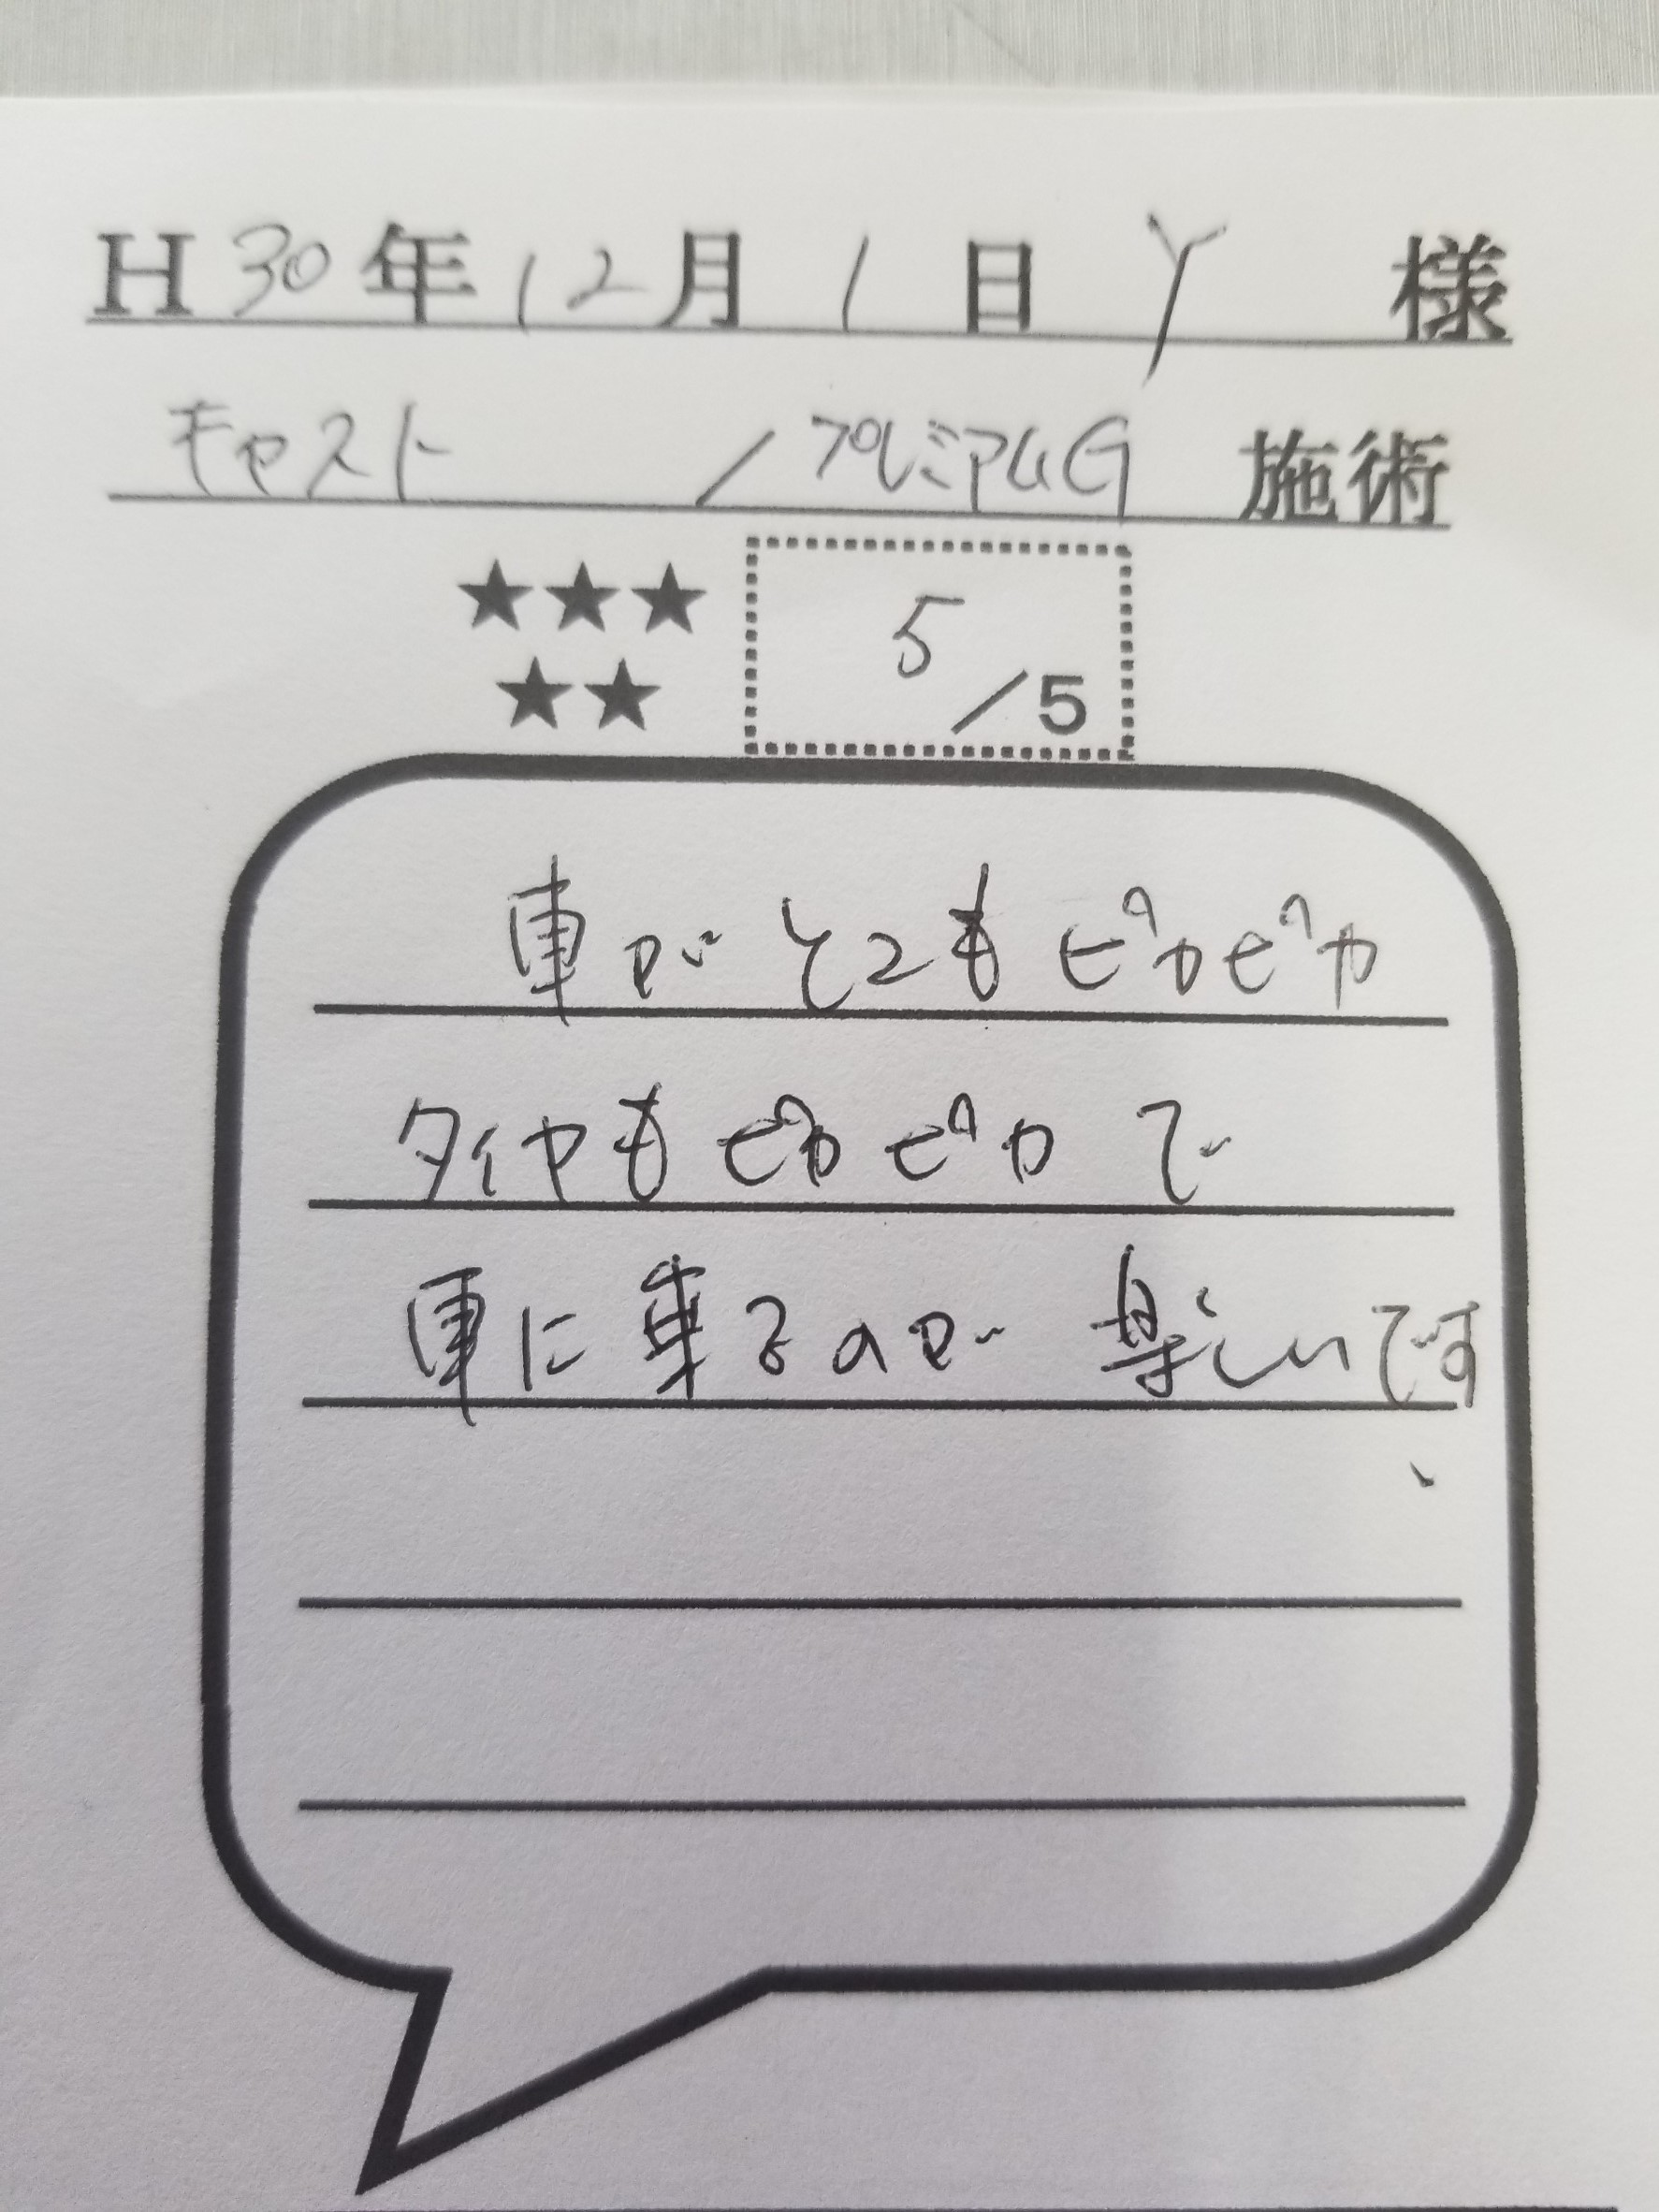 H30年12月1日 Y 様
キャスト /プレミアムG 施術
★★★
★★
5/5
車がとてもピカピカ
タイヤもピカピカで
車に乗るのが楽しいです
、